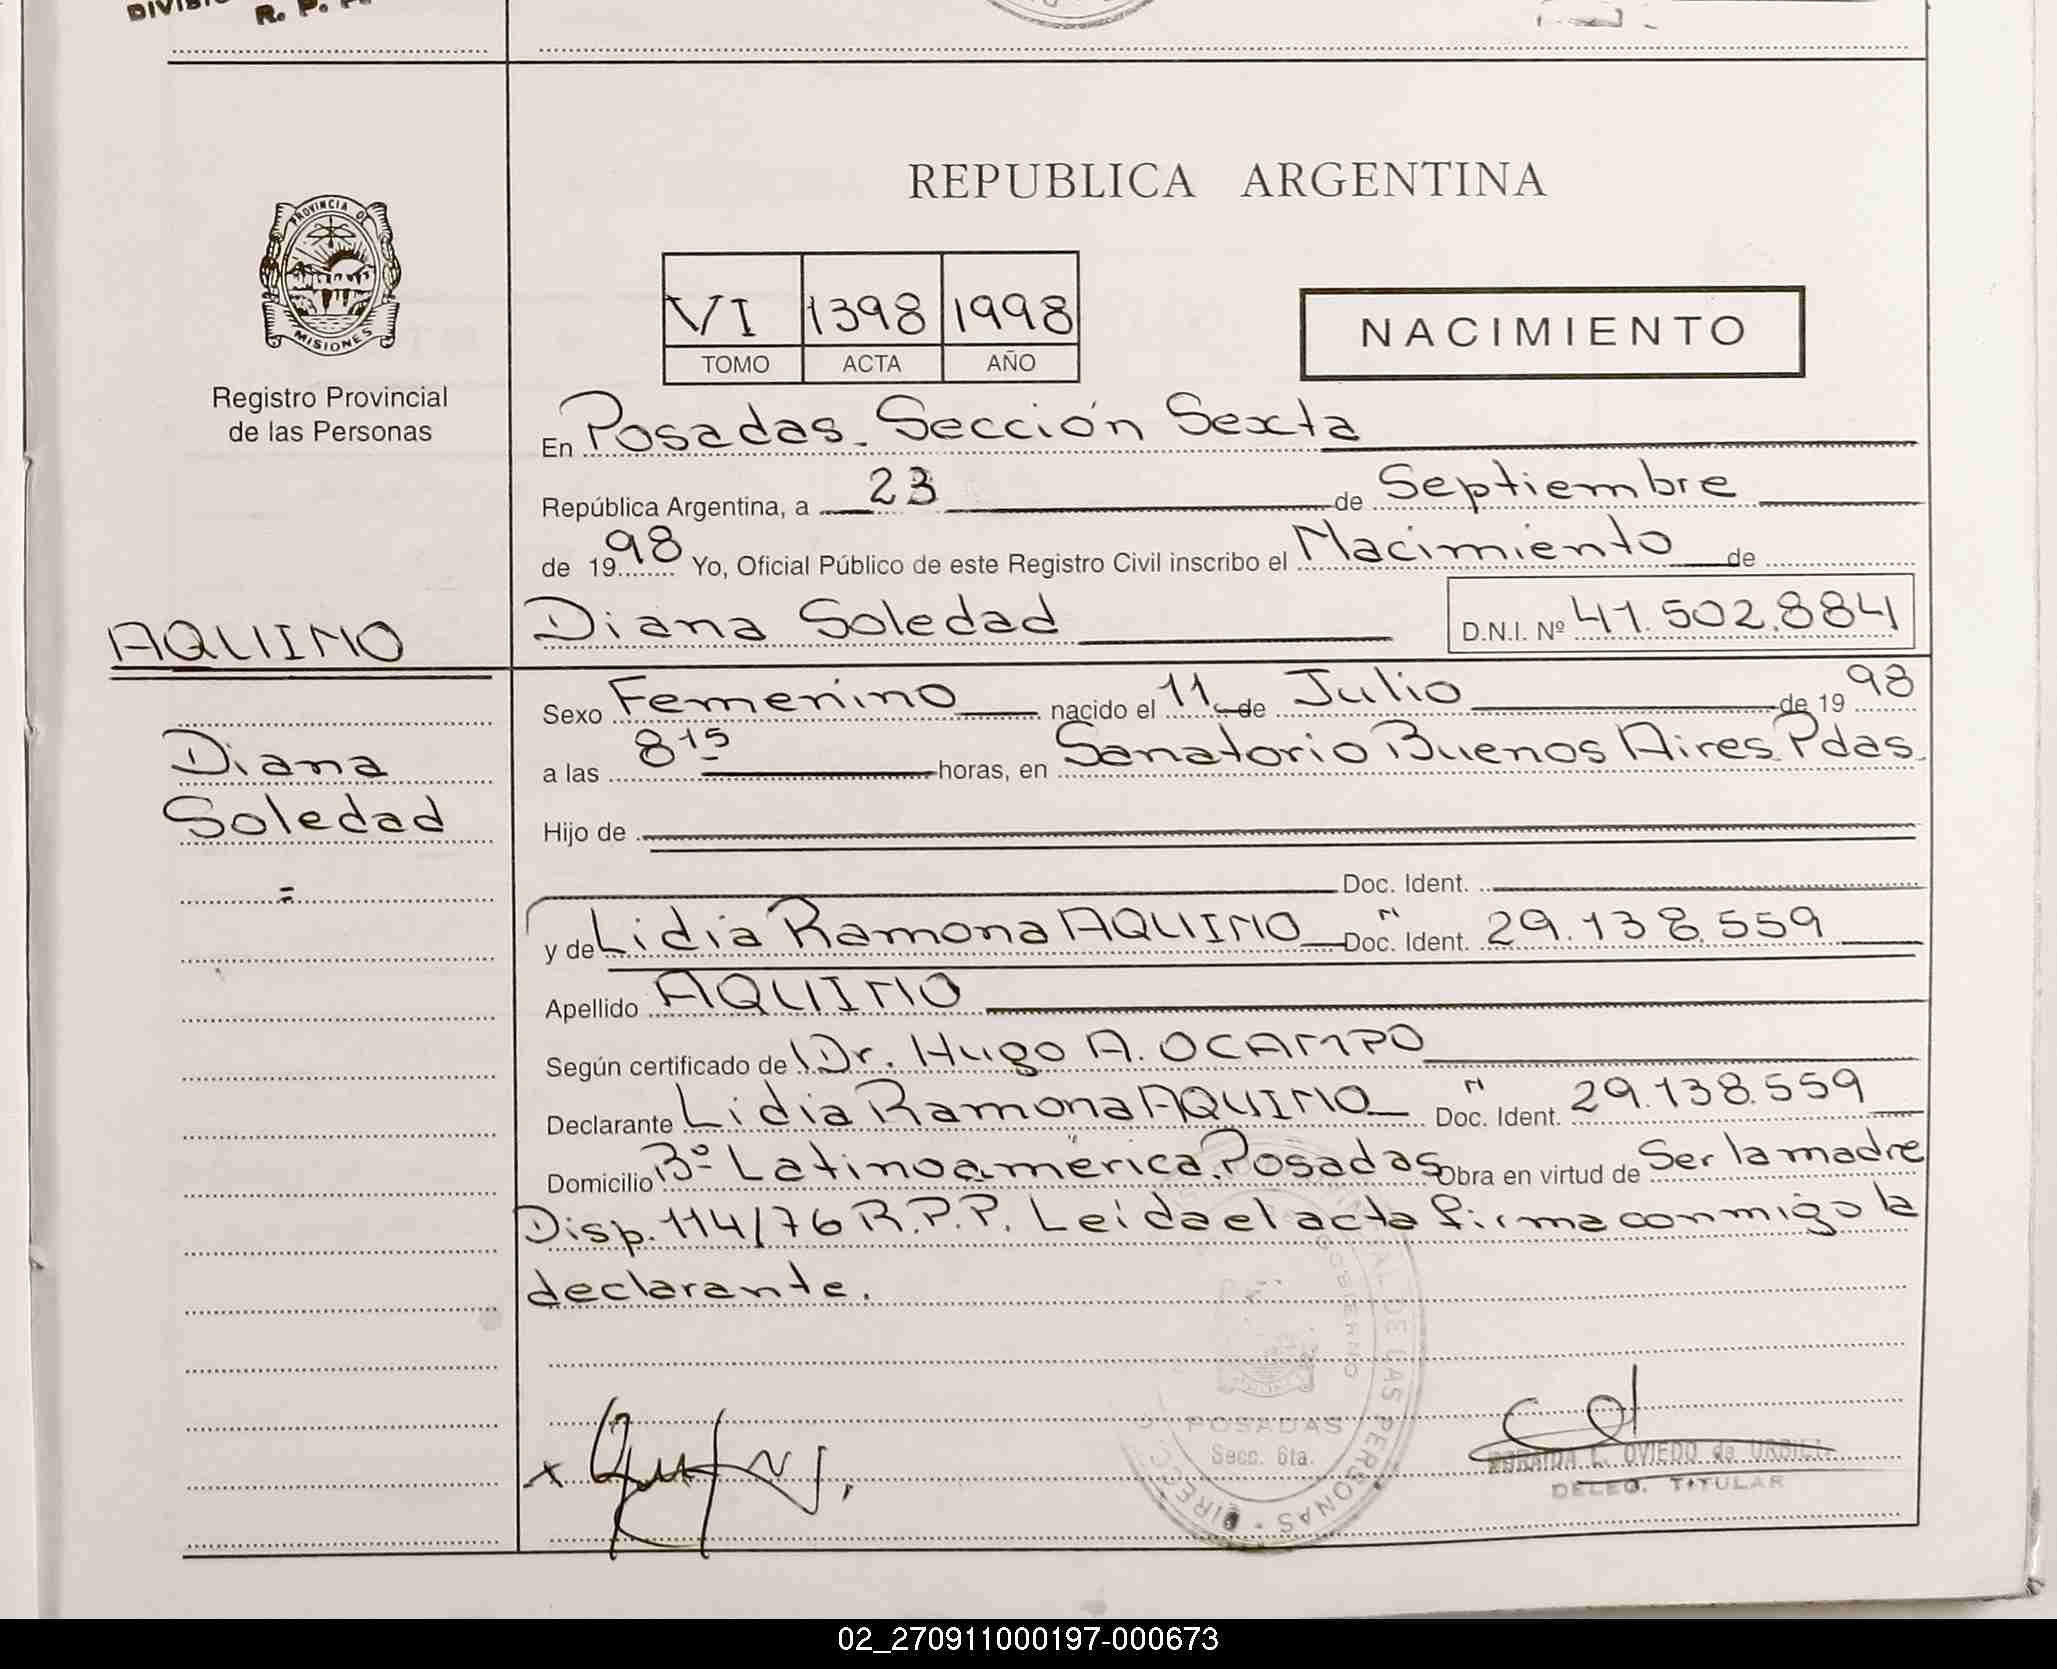 R. P. P.
REPUBLICA ARGENTINA
PROVINCIA DE
MISIONES
Registro Provincial
de las Personas
VI 1398 1998
TOMO ACTA AÑO
NACIMIENTO
En Posadas. Sección Sexta
República Argentina, a 23 de Septiembre
de 1998 Yo, Oficial Público de este Registro Civil inscribo el Nacimiento de
AQUINO
Diana Soledad D.N.I. Nº 41.502.884
Sexo Femenino nacido el 11 de Julio de 1998
Diana
a las 8 15 horas, en Sanatorio Buenos Aires. Pdas.
Soledad
Hijo de
=
Doc. Ident.
y de Lidia Ramona AQUINO Doc. Ident. "N" 29.138.559
Apellido AQUINO
Según certificado de Dr. Hugo A. OCAMPO
Declarante Lidia Ramona AQUINO Doc. Ident. "N" 29.138.559
Domicilio Bº Latinoamérica. Posadas Obra en virtud de Ser la madre
Disp. 114/76 R.P.P. Leída el acta firma conmigo la
declarante.
POSADAS
Secc. 6ta.
x
OVIEDO de
DELEG. TITULAR
02_270911000197-000673